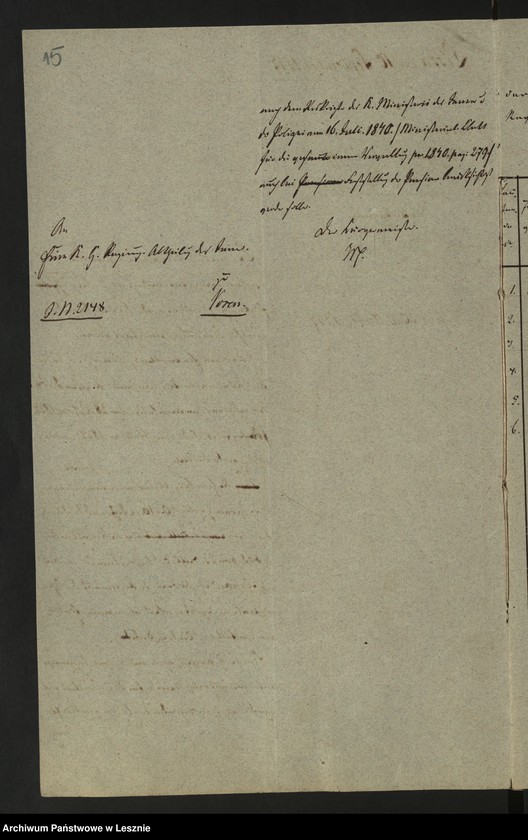 15
nach dem Rescripte des K. Ministerii des Innern u
der Polizei vom 16. Juli 1840. / Ministerial Blatt
für die gesammte innere Verwaltung pr 1840. pag. 279/
auch bei Feststellung der Pension berücksichtigt
werden solle.
Der Bürgermeister.
An
Eine K. H. Regierung. Abtheilung des Innern.
zu
Posen.
J. N. 2148
1.
2.
3.
4.
5.
6.
Archiwum Państwowe w Lesznie